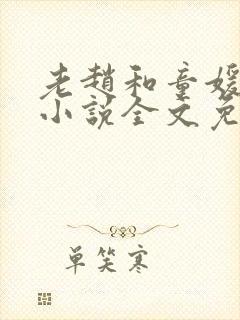 老趙和童媛
小說全文免
單笑寒